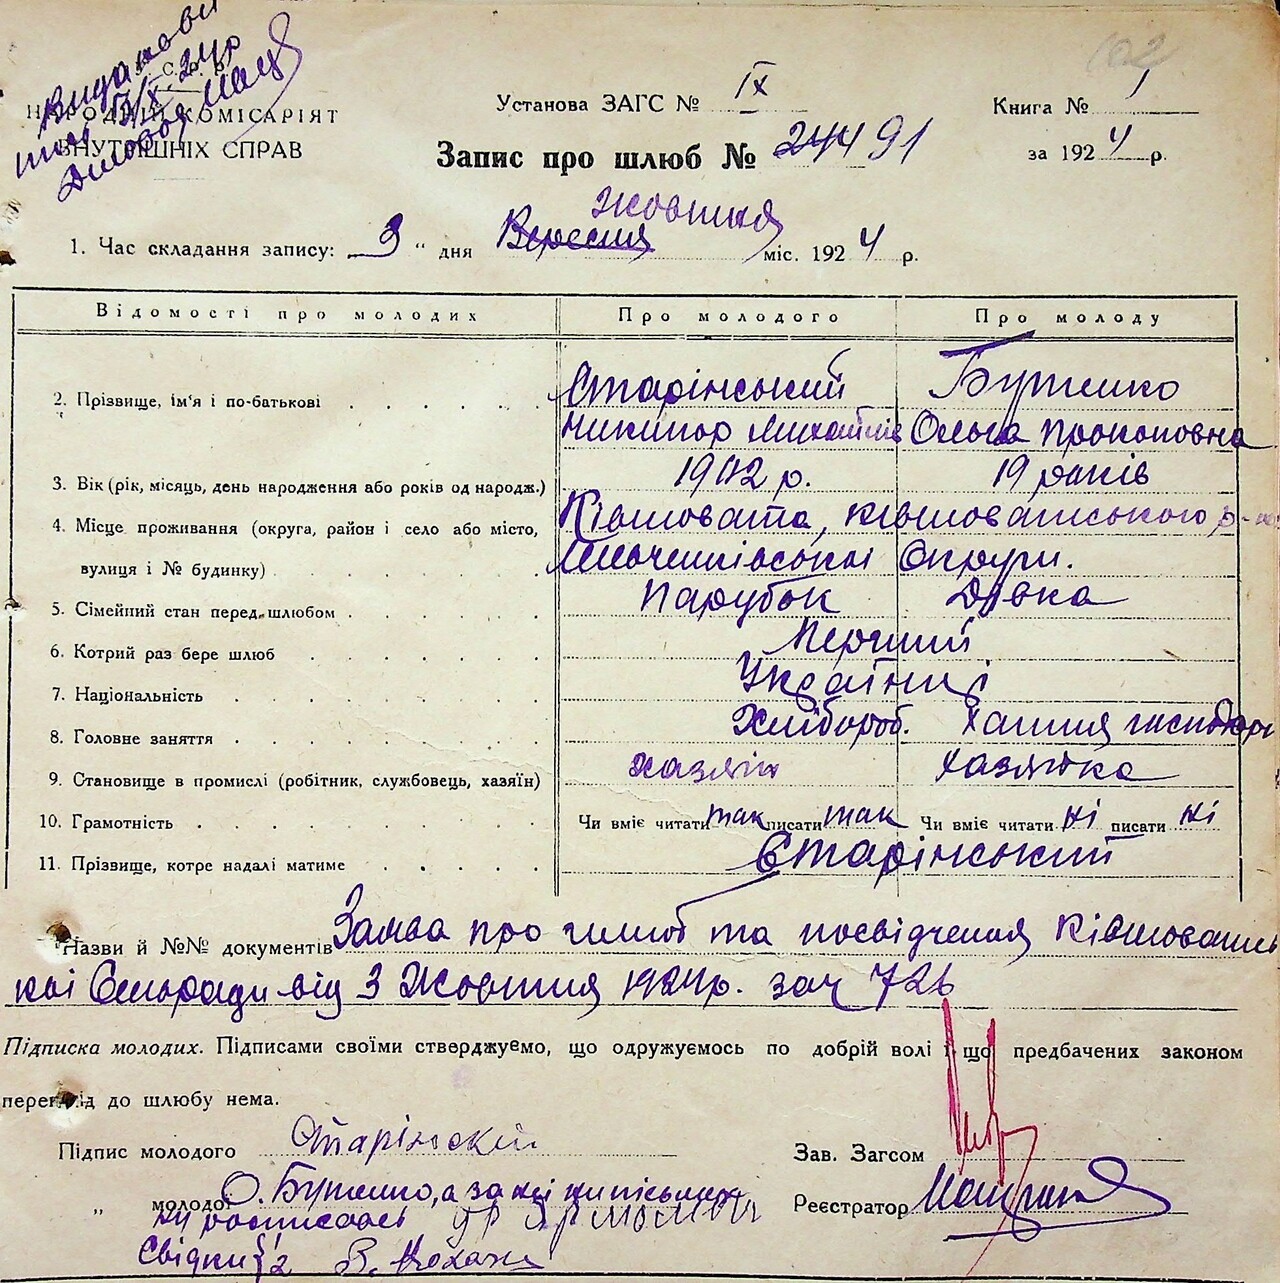 У. С. Р. Р.
НАРОДНІЙ КОМІСАРІЯТ
ВНУТРІШНІХ СПРАВ
Установа ЗАГС № IX
Книга № 1
Запис про шлюб № 244 91
за 1924 р.
Жовтня
1. Час складання запису: 3 " дня Вересня міс. 1924 р.
Відомості про молодих Про молодого Про молоду
2. Прізвище, ім'я і по-батькові Старінський Бутенко
Никипор Михайлів Ольга Прокоповна
3. Вік (рік, місяць, день народження або років од народж.) 1902 р. 19 років
4. Місце проживання (округа, район і село або місто, Ківшовата, Ківшоватського р-ну
вулиця і № будинку) Округи.
5. Сімейний стан перед шлюбом Парубок Дівка
6. Котрий раз бере шлюб Перший
7. Національність Українці
8. Головне заняття Хлібороб. Хатня господарк
9. Становище в промислі (робітник, службовець, хазяїн) хазяїн хазяйка
10. Грамотність Чи вміє читати так писати так Чи вміє читати ні писати ні
11. Прізвище, котре надалі матиме Старінський
Назви й №№ документів Заява про шлюб та посвідчення Ківшоватсь
кої Сільради від 3 Жовтня 1924 р. за ч 726
Підписка молодих. Підписами своїми стверджуємо, що одружуємось по добрій волі і що предбачених законом
перешкід до шлюбу нема.
Підпис молодого Старінский
Зав. Загсом
" молодої О. Бутенко, а за неї
Реєстратор
росписавсь
Свідки { 2 В.